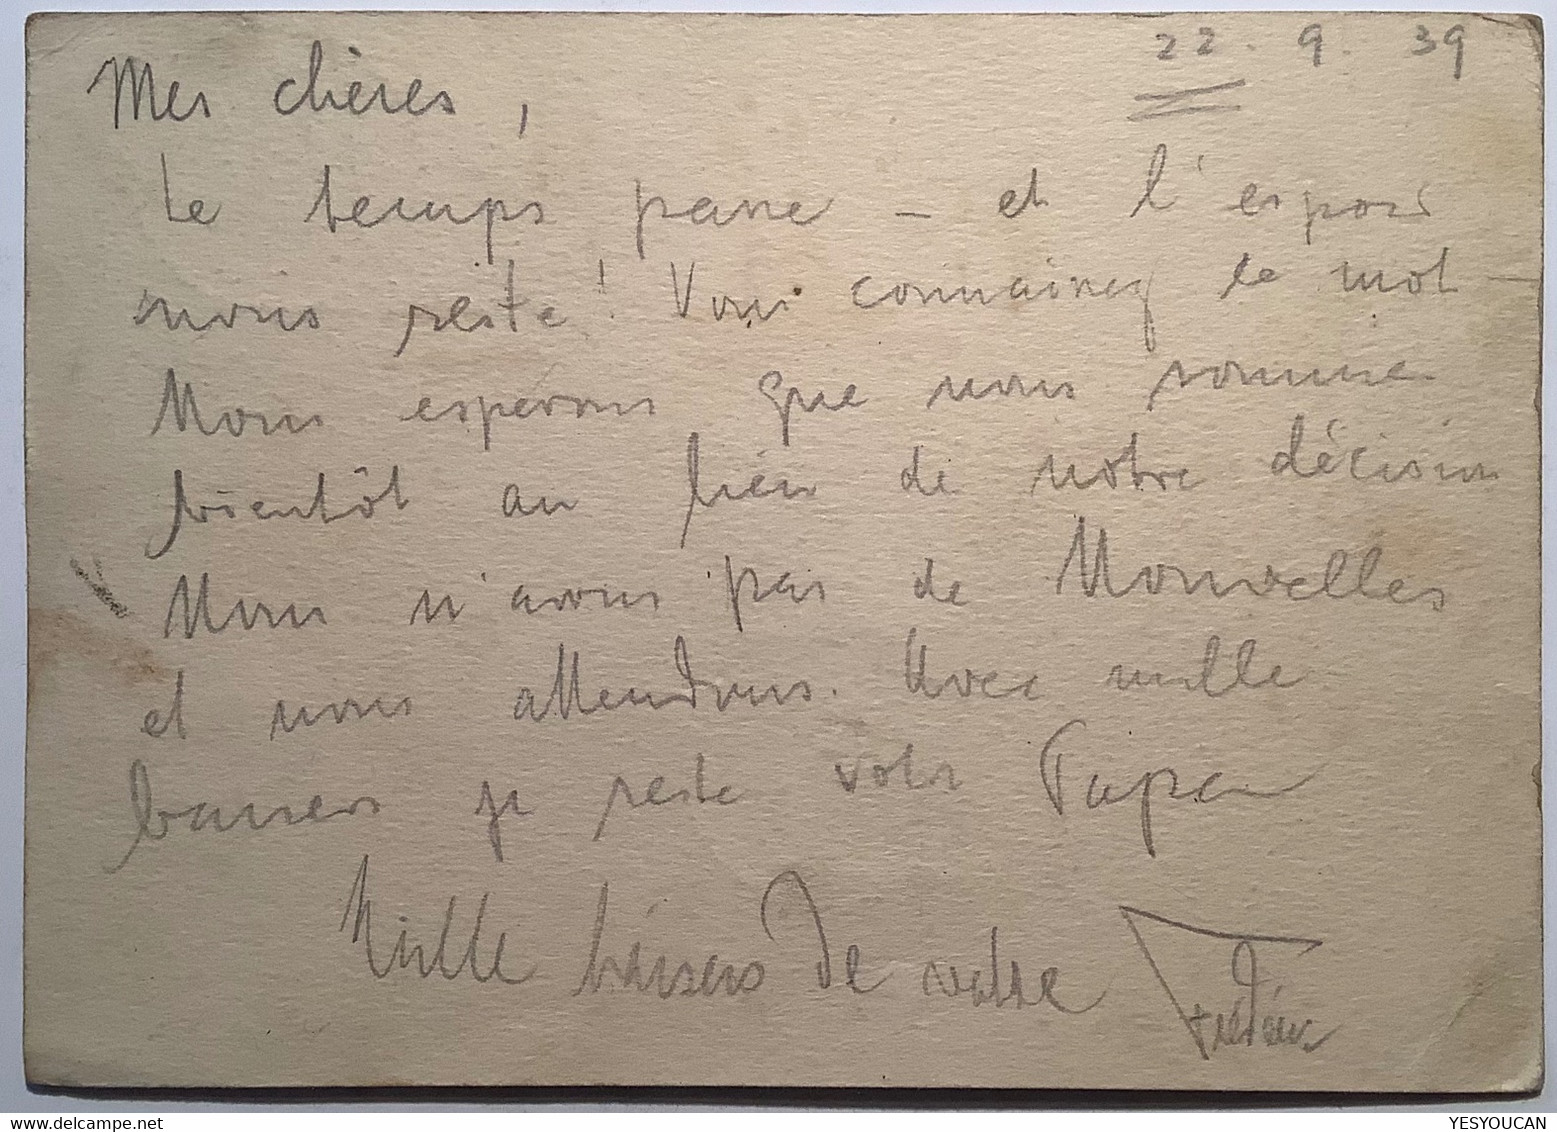 22. 9. 39
Mes chères,
Le temps passe – et l'espoir
nous reste! Vous connaissez le mot –
Nous esperons que nous sommes
bientôt au lieu de notre décision
Nous n'avons pas de Nouvelles
et nous attendons. Avec mille
baisers je reste votre Papa
Mille baisers de votre
YESYOUCAN